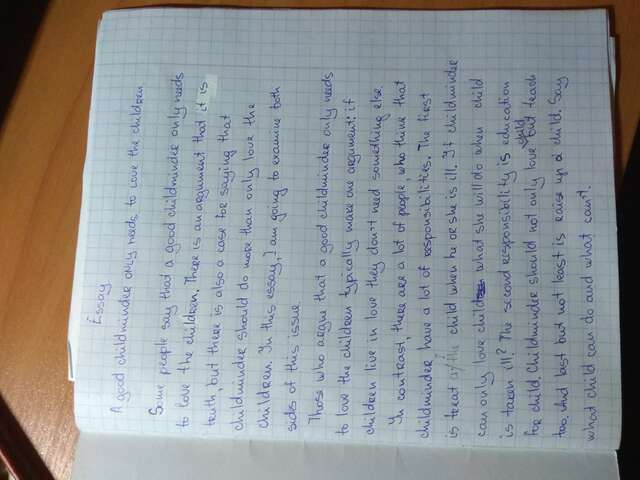 Essay
A good childminder only needs to love the children
Some people say that a good childminder only needs
to love the children. There is an argument that it is
truth but there is also a case for saying that
childminder should do more than only love the
children. In this essay, I am going to examine both
sides of this issue
Those who argue that a good childminder only needs
to love the children typically make one argument: if
children live in love they don't need something else
In contrast, there are a lot of people who think that
childminder have a lot of responsibilities. The first
is treat the child when he or she is ill. If childminder
can only love child what she will do when child
is taken ill? The second responsibility is education
for child. Childminder should not only love but teach child
too. And last but not least is raise up a child. Say
what child can do and what can't.